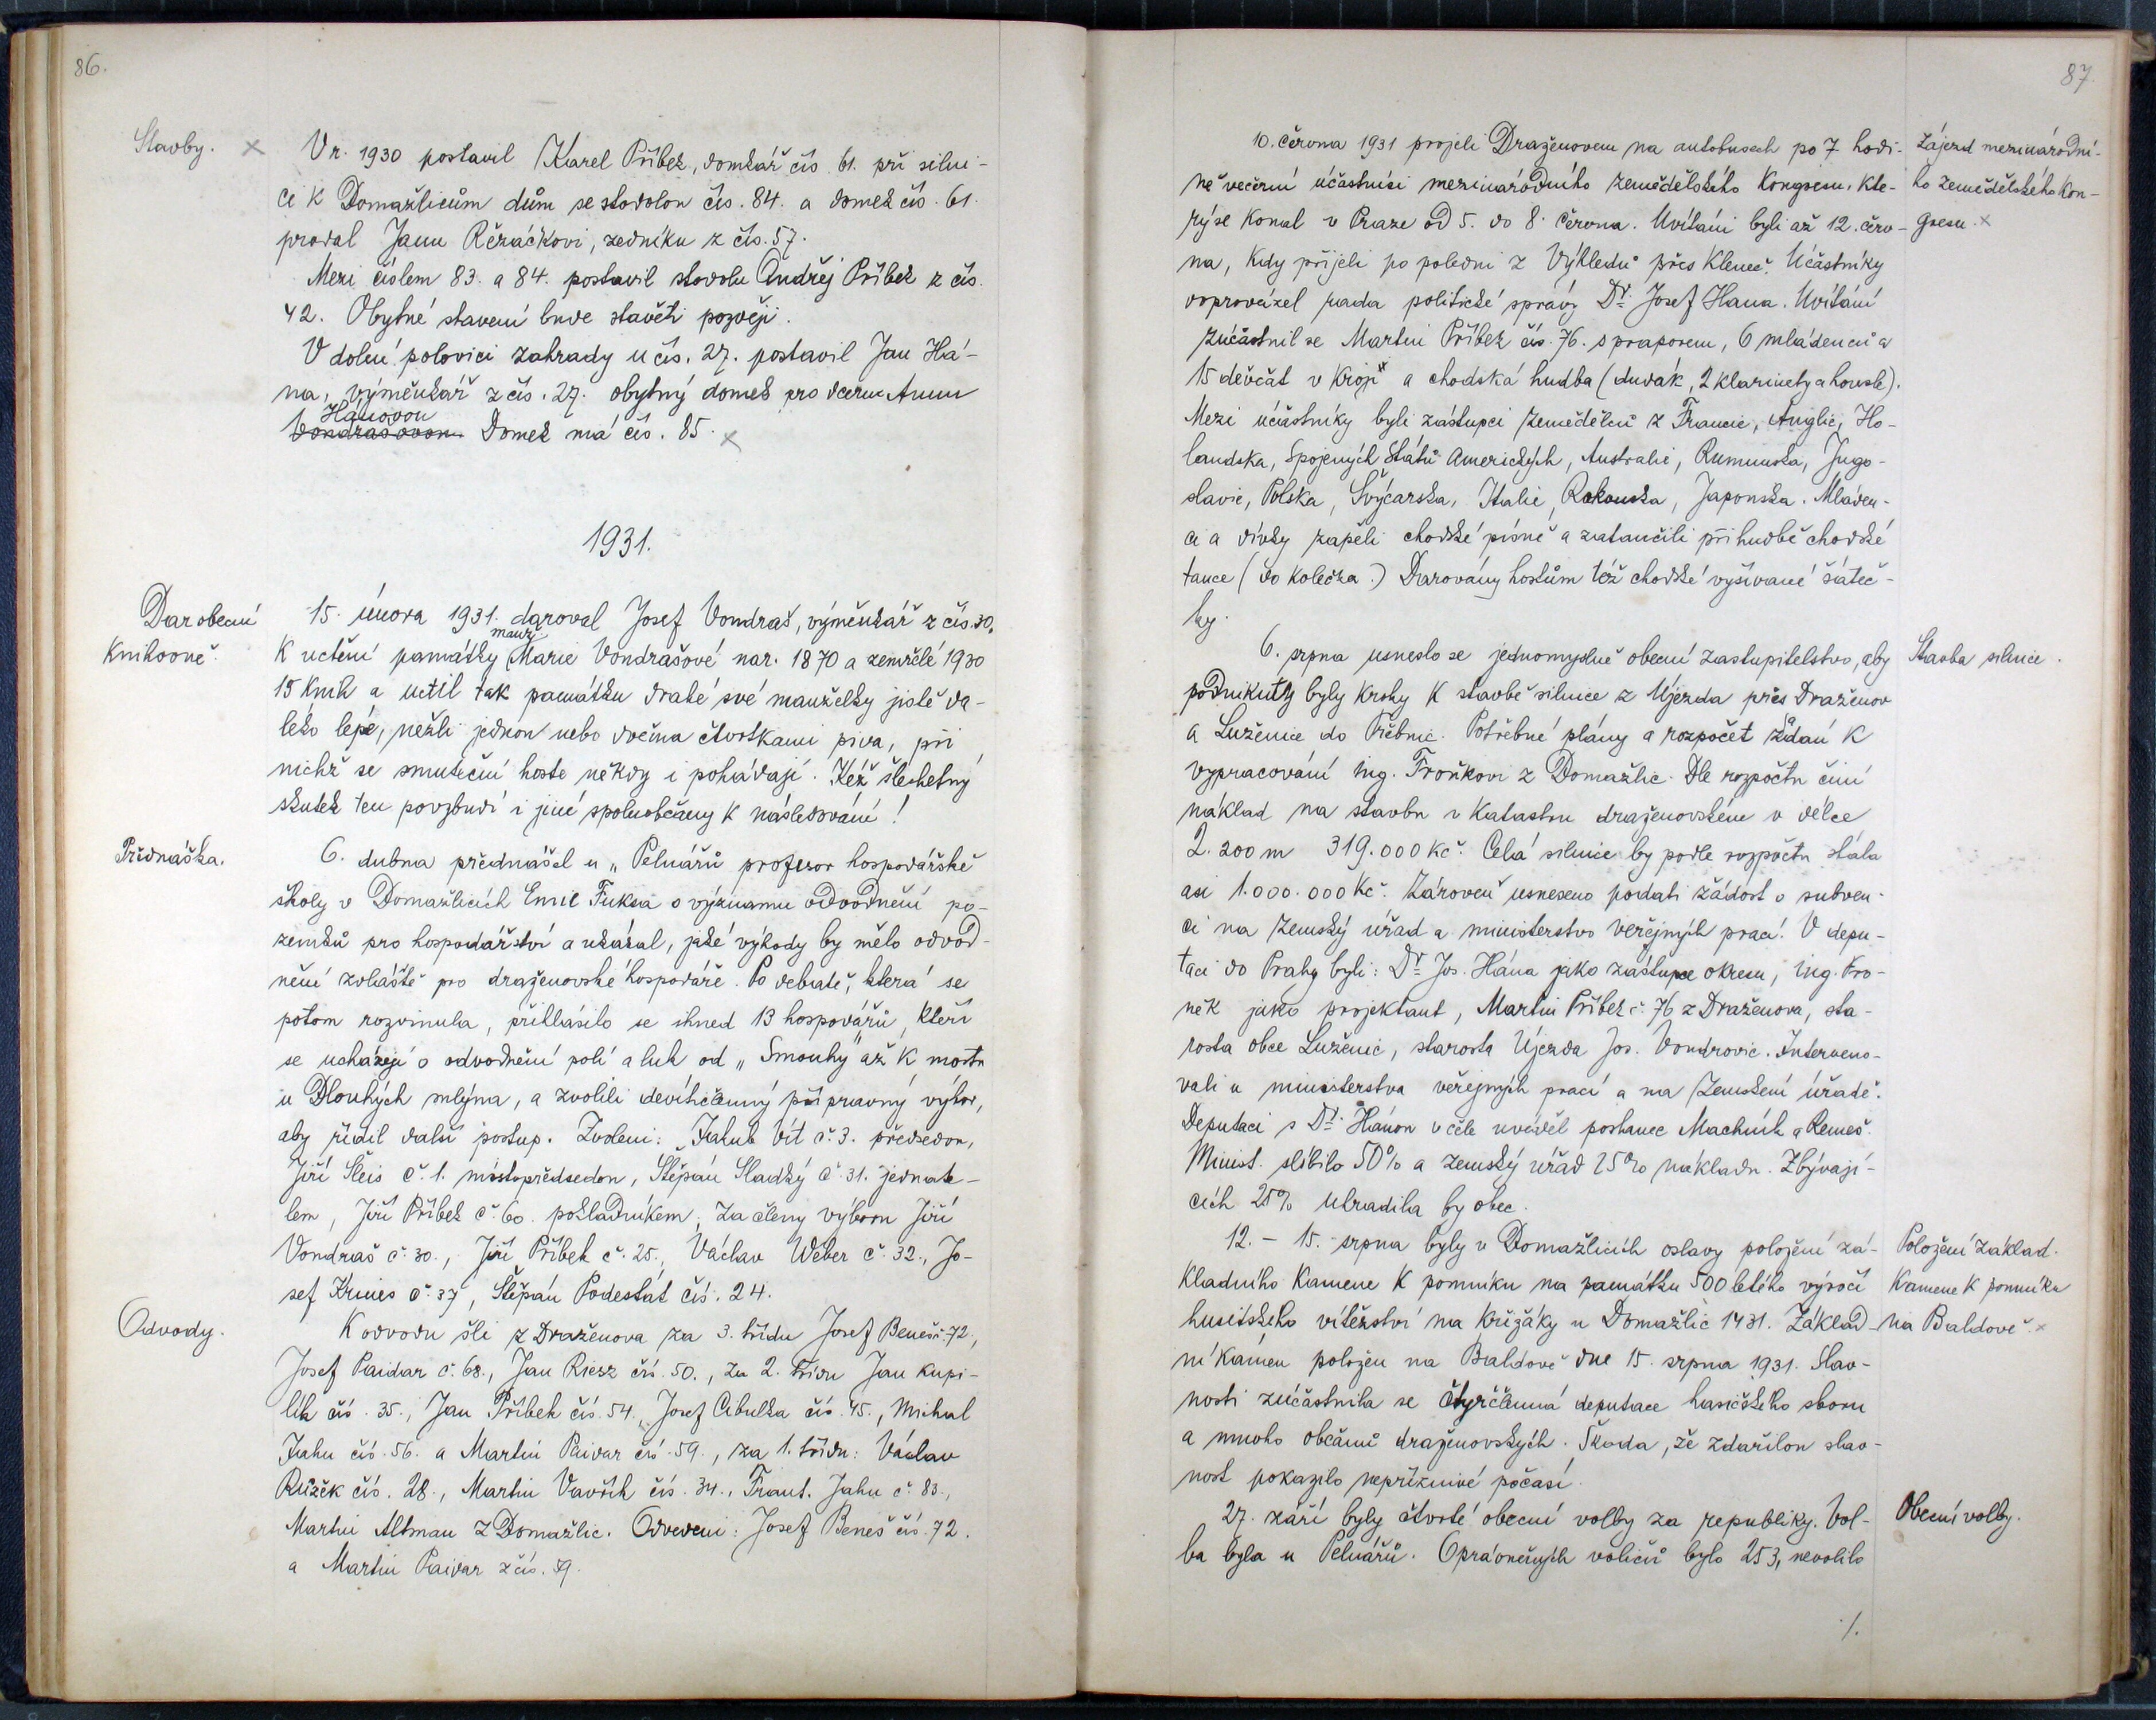 86.
Stavby. ×
V r. 1930 postavil Karel Příbek, domkář čís. 61. při silni-
ci k Domažlicům dům se stodolou čís. 84. a domek čís. 61.
prodal Janu Řezáčkovi, zedníku z čís. 57.
Mezi číslem 83. a 84. postavil stodolu Ondřej Příbek z čís.
42. Obytné stavení bude stavěti později.
V dolní polovici zahrady u čís. 27. postavil Jan Há-
na, výměnkář z čís. 27. obytný domek pro dceru Annu
Hanovou
Vondrašovou. Domek má čís. 85. ×
1931.
Dar obecní
knihovně.
15. února 1931. daroval Josef Vondraš, výměnkář z čís. 30.
manž.
k uctění památky Marie Vondrašové nar. 1870 a zemřelé 1930
15 knih a uctil tak památku drahé své manželky jistě da-
leko lépe, nežli jednou nebo dvěma čtvrtkami piva, při
nichž se smuteční hosté někdy i pohádají. Kéž šlechetný
skutek ten povzbudí i jiné spoluobčany k následování!
Přednáška.
6. dubna přednášel u „Pelnářů profesor hospodářské
školy v Domažlicích Emil Fuksa o významu odvodnění po-
zemků pro hospodářství a ukázal, jaké výhody by mělo odvod-
nění zvláště pro draženovské hospodáře. Po debatě, která se
potom rozvinula, přihlásilo se ihned 13 hospodářů, kteří
se ucházejí o odvodnění polí a luk od „Smouhy" až k mostu
u Dlouhých mlýna, a zvolili devítičlenný přípravný výbor,
aby řídil další postup. Zvoleni: Jakub Vít č. 3. předsedou,
Jiří Šleis č. 1. místopředsedou, Štěpán Sladký č. 31. jednate-
lem, Jiří Příbek č. 60. pokladníkem, za členy výboru Jiří
Vondraš č. 30., Jiří Příbek č. 25., Václav Weber č. 32., Jo-
sef Krnes č. 37, Štěpán Podestát čís. 24.
Odvody.
K odvodu šli z Draženova za 3. třídu Josef Beneš č. 72.,
Josef Paidar č. 68., Jan Riesz čís. 50., za 2. třídu Jan Kupi-
lík čís. 35., Jan Příbek čís. 54., Josef Cibulka čís. 45., Michal
Jahn čís. 56. a Martin Paidar čís. 59., za 1. třídu: Václav
Růžek čís. 28., Martin Vavřík čís. 34., Frant. Jahn č. 83.,
Martin Altman z Domažlic. Odvedeni: Josef Beneš čís. 72.
a Martin Paidar z čís. 59.
87.
10. června 1931 projeli Draženovem na autobusech po 7. hodi-
ně večerní účastníci mezinárodního zemědělského kongresu, kte-
rý se konal v Praze od 5. do 8. června. Uvítáni byli až 12. červ-
na, kdy přijeli po poledni z Výhledů přes Kleneč. Účastníky
doprovázel rada politické správy Dr. Josef Hana. Uvítání
zúčastnil se Martin Příbek čís. 76. s praporem, 6 mládenců a
15 děvčat v kroji a chodská hudba (dudák, 2 klarinety a housle).
Mezi účastníky byli zástupci zemědělců z Francie, Anglie, Ho-
landska, Spojených Států Amerických, Australie, Rumunska, Jugo-
slavie, Polska, Švýcarska, Italie, Rakouska, Japonska. Mláden-
ci a dívky zapěli chodské písně a zatančili při hudbě chodské
tance (do kolečka.) Darovány hostům též chodské vyšívané šáteč-
ky.
Zájezd mezinárodní-
ho zemědělského kon-
gresu. ×
6. srpna usneslo se jednomyslně obecní zastupitelstvo, aby
podniknuty byly kroky k stavbě silnice z Újezda přes Draženov
a Luženice do Třebnic. Potřebné plány a rozpočet zadán k
vypracování ing. Froňkovi z Domažlic. Dle rozpočtu činí
náklad na stavbu v katastru draženovském v délce
2.200 m 319.000 Kč. Celá silnice by podle rozpočtu stála
asi 1.000.000 Kč. Zároveň usneseno podati žádost o subven-
ci na zemský úřad a ministerstvo veřejných prací. V depu-
taci do Prahy byli: Dr. Jos. Hána jako zástupce okresu, ing. Fro-
něk jako projektant, Martin Příbek č. 76 z Draženova, sta-
rosta obce Luženic, starosta Újezda Jos. Vondrovic. Interveno-
vali u ministerstva veřejných prací a na Zemském úřadě.
Deputaci s Dr. Hánou v čele uváděl poslanec Machník a Remeš.
Minist. slíbilo 50% a zemský úřad 25% nákladu. Zbývají-
cích 25% uhradila by obec.
Stavba silnice.
12. – 15. srpna byly v Domažlicích oslavy položení zá-
kladního kamene k pomníku na památku 500 letého výročí
husitského vítězství na křižáky u Domažlic 1431. Základ-
ní kámen položen na Baldově dne 15. srpna 1931. Slav-
nosti zúčastnila se čtyřčlenná deputace hasičského sboru
a mnoho občanů draženovských. Škoda, že zdařilou slav-
nost pokazilo nepříznivé počasí.
Položení základ.
kamene k pomníku
na Baldově. ×
27. září byly čtvrté obecní volby za republiky. Vol-
ba byla u Pelnářů. Oprávněných voličů bylo 253, nevolilo
Obecní volby.
./.